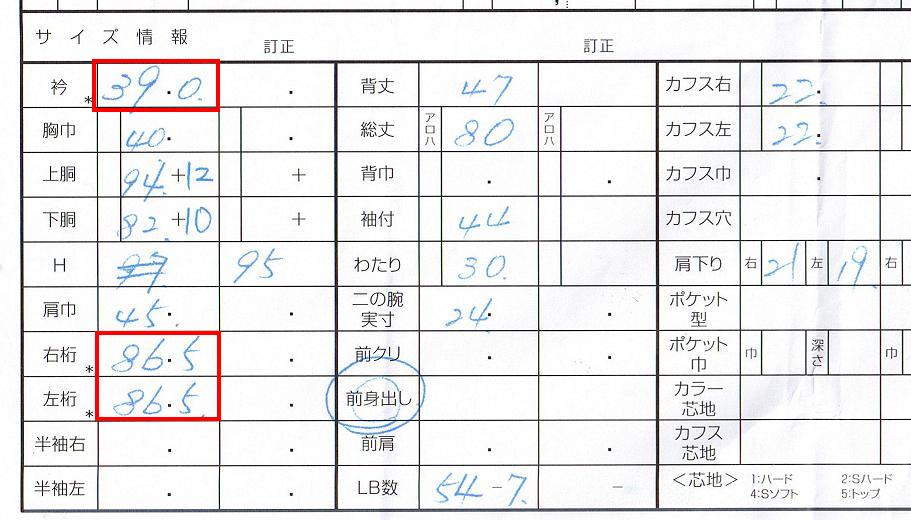 サイズ情報 訂正 訂正
衿 * 39.0. . 背丈 47 カフス右 22.
胸巾 40. . 総丈 アロハ 80 アロハ カフス左 22.
上胴 94.+12 + 背巾 . . カフス巾 .
下胴 82.+10 + 袖付 44 カフス穴
H 97 95 わたり 30. 肩下り 右 21 左 19. 右
肩巾 45. . 二の腕実寸 24. . ポケット型
右裄 * 86.5 . 前クリ . . ポケット巾 巾 深さ 巾
左裄 * 86.5. . 前身出し カラー芯地
半袖右 . . 前肩 . . カフス芯地
半袖左 . . LB数 54-7. - <芯地> 1:ハード 2:Sハード
4:Sソフト 5:トップ